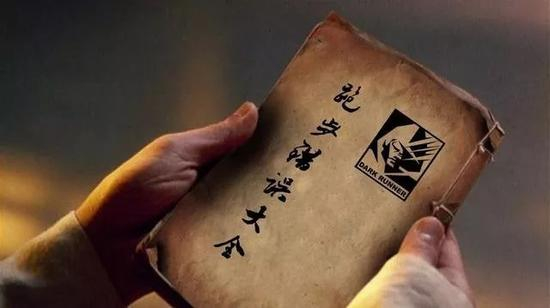 跑步错误大全
DARK RUNNER